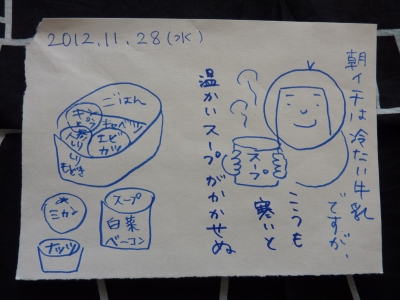 2012.11.28(水)
朝イチは冷たい牛乳
ですが、
こうも
寒いと
温かいスープがかかせぬ
スープ
ごはん
キャベツ
エビ
カツ
もどき
ミカン
スープ
白菜
ベーコン
ナッツ